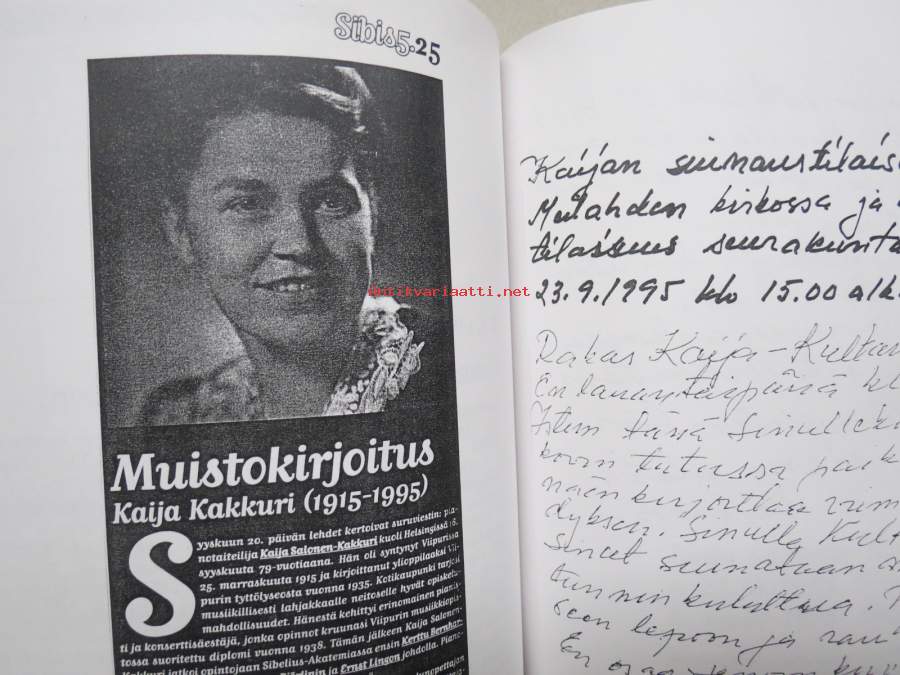 Sibis5.25
antikvariaatti.net
Muistokirjoitus
Kaija Kakkuri (1915-1995)
Syyskuun 20. päivän lehdet kertoivat suruviestin: pia-
notaiteilija Kaija Salonen-Kakkuri kuoli Helsingissä 18.
syyskuuta 79-vuotiaana. Hän oli syntynyt Viipurissa
25. marraskuuta 1915 ja kirjoittanut ylioppilaaksi Vii-
purin tyttölyseosta vuonna 1935. Kotikaupunki tarjosi
musiikillisesti lahjakkaalle neitoselle hyvät opiskelu-
mahdollisuudet. Hänestä kehittyi erinomainen pianis-
ti ja konserttisäestäjä, jonka opinnot kruunasi Viipurin musiikkiopis-
tossa suoritettu diplomi vuonna 1938. Tämän jälkeen Kaija Salonen-
Kakkuri jatkoi opintojaan Sibelius-Akatemiassa ensin Kerttu Bernhar-
ja Ernst Lingon johdolla. Piano-
Kaijan siunaustilais
Meilahden kirkossa ja
tilaisuus seurakunta
23.9.1995 klo 15.00 alk
Rakas Kaija-Kultan
En lauantaipäivä kl
tässä Sinulle
koom tutussa paik
nään kirjoittaa viim
dyksen. Sinulla Kult
Sinut seurataan
tunnin kuluttua.
seen lepoon ja rau
En osaa